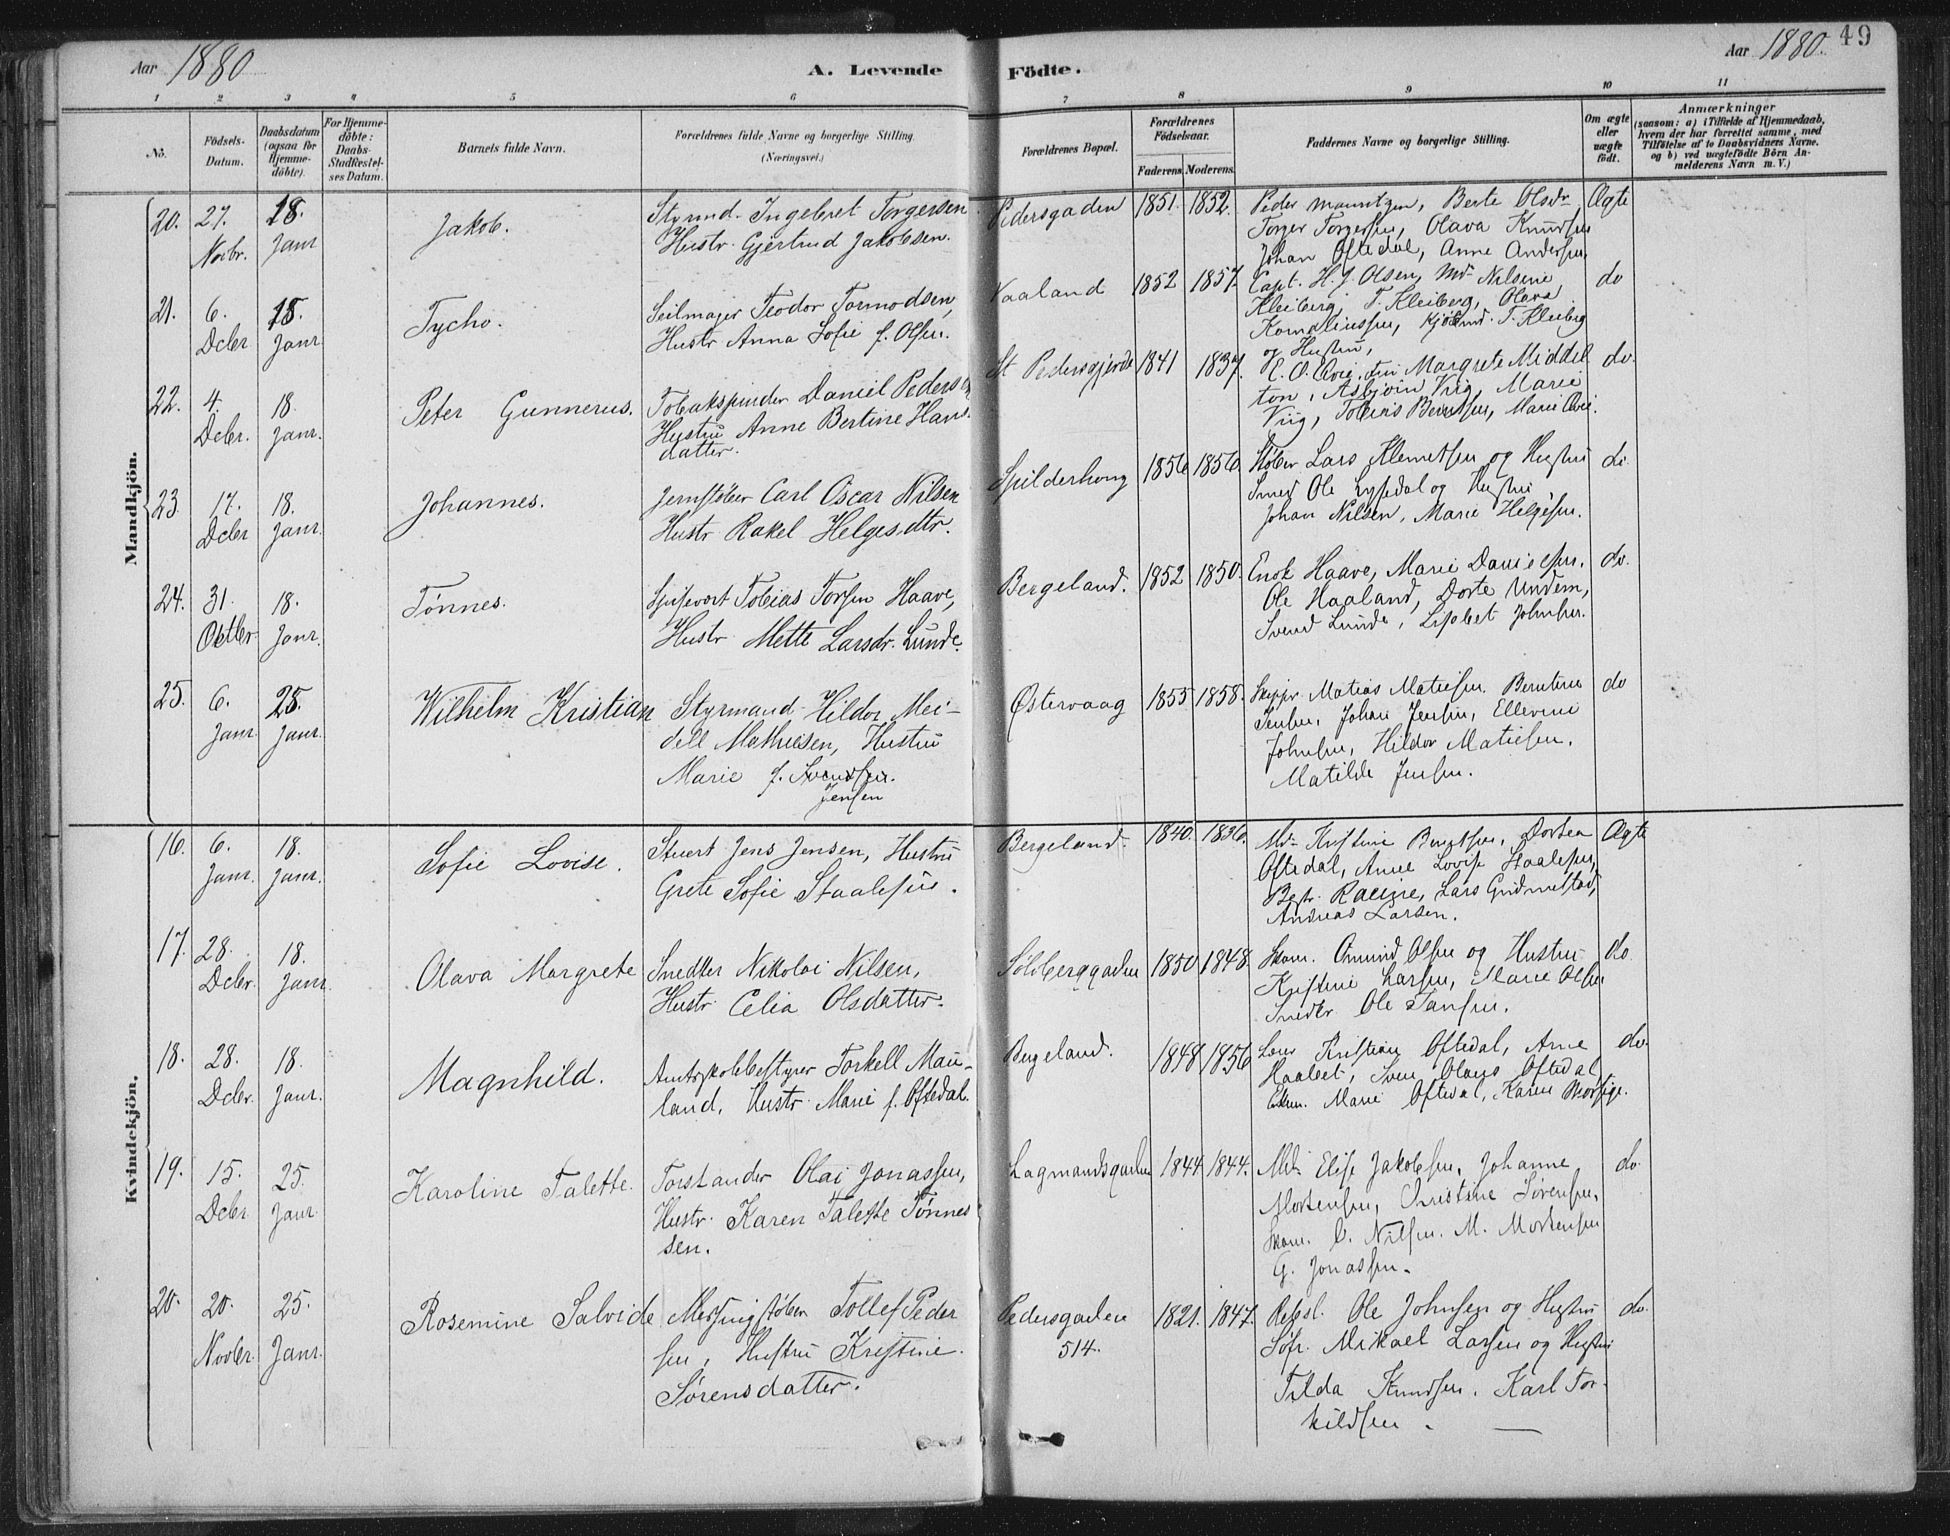 Aar 1880
A. Levende
Födte.
Aar 1880.
49
1 2 3 4 5 6 7 8 9 10 11
No.
Födsels-Datum.
Daabsdatum (ogsaa for Hjemme-döbte).
For Hjemme-döbte: Daabs-Stadfæstel-ses Datum.
Barnets fulde Navn.
Forældrenes fulde Navne og borgerlige Stilling.
(Næringsvei.)
Forældrenes Bopæl.
Forældrenes Födselsaar.
Faderens Moderens
Faddernes Navne og borgerlige Stilling.
Om ægte eller uægte födt.
Anmærkninger
(saasom: a) i Tilfælde af Hjemmedaab, hvem der har forrettet samme, med Tilföielse af to Daabsvidners Navne, og b) ved uægtefödte Börn Anmelderens Navn m. V.)
Mandkjön.
20. 27. Novbr. 18. Janr Jakob.
Styrmd. Ingebret Torgersen
Hustr. Gjertrud Jakobsen.
Pedersgaden 1851. 1852.
Peder Mauritzen, Berte Olsdr
Torger Torgersen, Olava Knudsen
Johan Oftedal, Anne Andersen.
Ægte
21. 6. Dcbr 18. Janr Tycho.
Seilmager Teodor Tormodsen,
Hustr Anna Sofie f. Olsen.
Vaaland 1852 1857
Capt. H. J. Olsen, Md. Nilsine
Kleiberg, T. Kleiberg, Olava
Korneliussen, Kjøbmd. T. Kleiberg
og Hustru,
do
22. 4. Dcbr. 18 Janr. Peter Gunnerus.
Tobakspinder Daniel Pedersen
Hustru Anne Bertine Hans
datter.
St Pedersgjerde 1841 1837.
Margrete Middel
ton, Asbjørn Vrig, Marie
Vrig, Tobias Berentsen, Marie
do.
23. 17. Dcbr 18. Janr. Johannes.
Jernstøber Carl Oscar Nilsen
Hustr Rakel Helgesdtr.
Spilderhoug 1856 1856.
Støber Lars Klemetsen og Hustru
Smed Ole Lysedal og Hustru
Johan Nilsen, Marie Helgesen.
do.
24. 31. Oktbr. 18. Janr. Tønnes.
Spisevert Tobias Torsen Haave,
Hustr. Mette Larsdr. Lunde.
Bergeland. 1852 1850.
Enok Haave, Marie Danielsen.
Ole Haaland, Dorte Undem,
Svend Lunde, Lisabet Johnsen.
do.
25. 6. Janr. 25. Janr. Wilhelm Kristian
Styrmand Hildor Mei-
dell Mathiesen, Hustru
Marie f. Svendsen.
Jensen
Østervaag 1855 1858.
Skippr. Matias Matiesen. Berntine
Jensen, Johan Jensen, Ellevine
Johnsen, Hildor Matiesen.
Matilde Jensen.
do
Kvindekjön.
16. 6. Janr. 18. Janr. Sofie Lovise.
Stuert Jens Jensen, Hustru
Grete Sofie Staalesen.
Bergeland. 1840. 1836.
Md. Kristine Berentsen, Dortea
Oftedal, Anne Lovise Staalesen,
Racine, Lars Gudmestad,
Andreas Larsen.
Ægte
17. 28. Dcbr. 18. Janr. Olava Margrete
Snedker Nikolai Nilsen,
Hustr. Celia Olsdatter.
Sølvberggaden 1850 1848.
Skom. Omund Olsen og Hustru
Kristine Larsen, Marie Olsen
Snedkr Ole Tansen.
do.
18. 28. Dcbr. 18. Janr. Magnhild.
Amtsskolebestyrer Torkell Mau-
land, Hustr. Marie f. Oftedal.
Bergeland. 1848 1856
Lars Kristian Oftedal, Anne
Haabet, Sven Olaus Oftedal
Marie Oftedal, Karen
do.
19. 15. Dcbr 25. Janr Karoline Talette.
Forstander Olai Jonassen,
Hustr. Karen Talette Tønnes
sen.
Lagmandsgaden 1844 1844.
Md. Elise Jakobsen, Johanne
Mortensen, Christine Sørensen.
Skom. C. Nilsen. M. Mortensen
G. Jonassen.
do.
20. 20. Novbr. 25. Janr. Rosemine Salvide
Messingstøber Tollef Peder
sen, Hustru Kristine
Sørensdatter.
Pedersgaden
514.
1821. 1847.
Rebsl. Ole Johnsen og Hustru
Søfr. Mikael Larsen og Hustru
Tilda Knudsen. Karl Tor-
kildsen.
do.